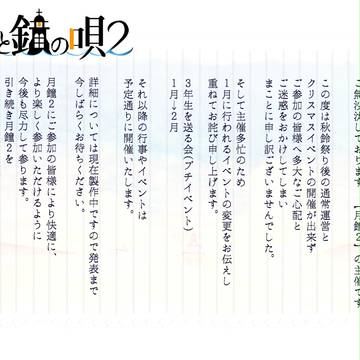 と鐘の唄2
ご無沙汰しております。【月鐘2】の主催です
この度は秋鈴祭り後の通常運営と
クリスマスイベントの開催が出来ず
ご参加の皆様へ多大なご心配と
ご迷惑をおかけしてしまい
まことに申し訳ございませんでした。
そして主催多忙のため
1月に行われるイベントの変更をお伝えし
重ねてお詫び申し上げます。
3年生を送る会(プチイベント)
1月→2月
それ以降の行事やイベントは
予定通りに開催いたします。
詳細については現在製作中ですので発表まで
今しばらくお待ちください。
月鐘2にご参加の皆様により快適に、
より楽しく参加いただけるように
今後も尽力して参ります。
引き続き月鐘2を